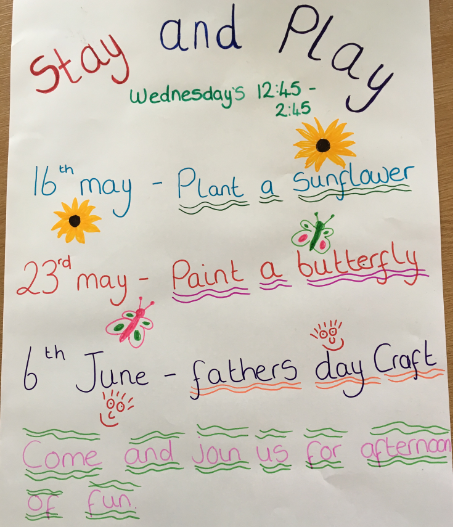 Stay and Play
Wednesday's 12:45 -
2:45
16th may - Plant a Sunflower
23rd may - Paint a butterfly
6th June - fathers day Craft
Come and Join us for afternoon
of fun.